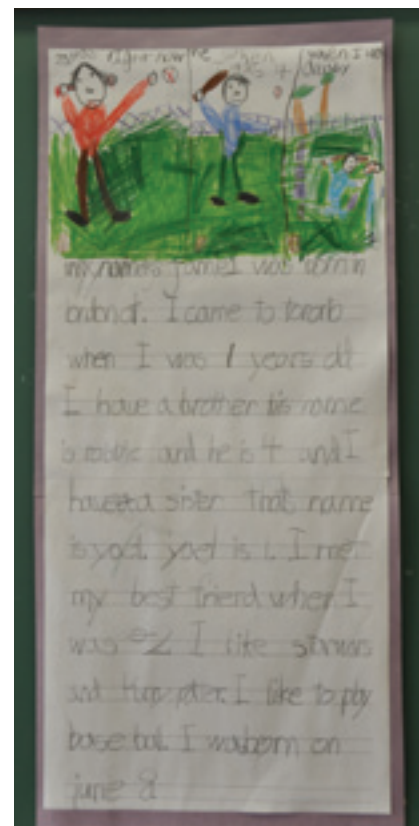 right now me when
when I was
my name is jame I was born in
I came to toronto
when I was 1 years old
I have a brother his name
is robbie and he is 4 and I
have a sister that name
is yael. yael is 1. I met
my best friend when I
was 2 I like starwars
and I like to play
baseball. I was born on
june 8